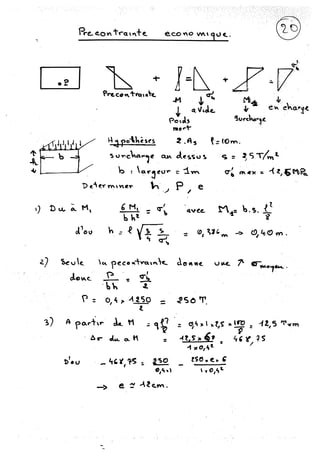 Precontrainte economique.
20
P
+
=
+
=
σ'b
Precontrainte
M
σ'b
M
Poids mort
a vide
Surcharge
en charge
Hypothèses 2.As ℓ=10m.
b
h
Surcharge au dessus S = 2,5T/m²
b : largeur = 1m σ'b max = 12,5 MPa
Determiner h, P, e
1) Du à M, 6 M / b h² = σ'b avec Ms = b.s. ℓ²/8
d'où h = ℓ √ 3/4 S/σ'b = 0,386m → 0,40m.
2) Seule la precontrainte donne une σ moyen.
donc P / bh = σ'b / 2
P = 0,4 × 1250 / 2 = 250 T.
3) A partir de M = q ℓ²/8 = 0,4×1×2,5 × 100/8 = 12,5 T×m
Δσ du a M = 12,5 × 6 / 1×0,4² = 468,75
D'ou - 468,75 = 250 / 0,4×1 - 250.e.6 / 1×0,4²
→ e ≃ 12cm.